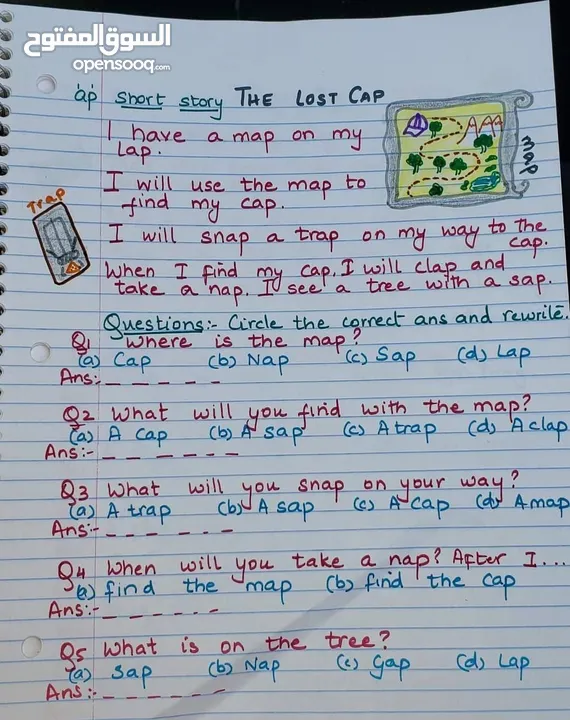 السوق المفتوح
opensooq.com
ap short story THE LOST CAP
I have a map on my
Lap.
I will use the map to
find my cap.
map
Trap
I will snap a trap on my way to the
cap.
When I find my cap, I will clap and
take a nap. I see a tree with a sap.
Questions:- Circle the correct ans and rewrite.
Q1 Where is the map?
(a) Cap (b) Nap (c) Sap (d) Lap
Ans:- _ _ _ _ _
Q2 What will you find with the map?
(a) A cap (b) A sap (c) A trap (d) A clap
Ans:- _ _ _ _ _ _
Q3 What will you snap on your way?
(a) A trap (b) A sap (c) A cap (d) A map
Ans:- _ _ _ _ _
Q4 When will you take a nap? After I...
(a) find the map (b) find the cap
Ans:- _ _ _ _ _
Q5 What is on the tree?
(a) Sap (b) Nap (c) Gap (d) Lap
Ans:- _ _ _ _ _